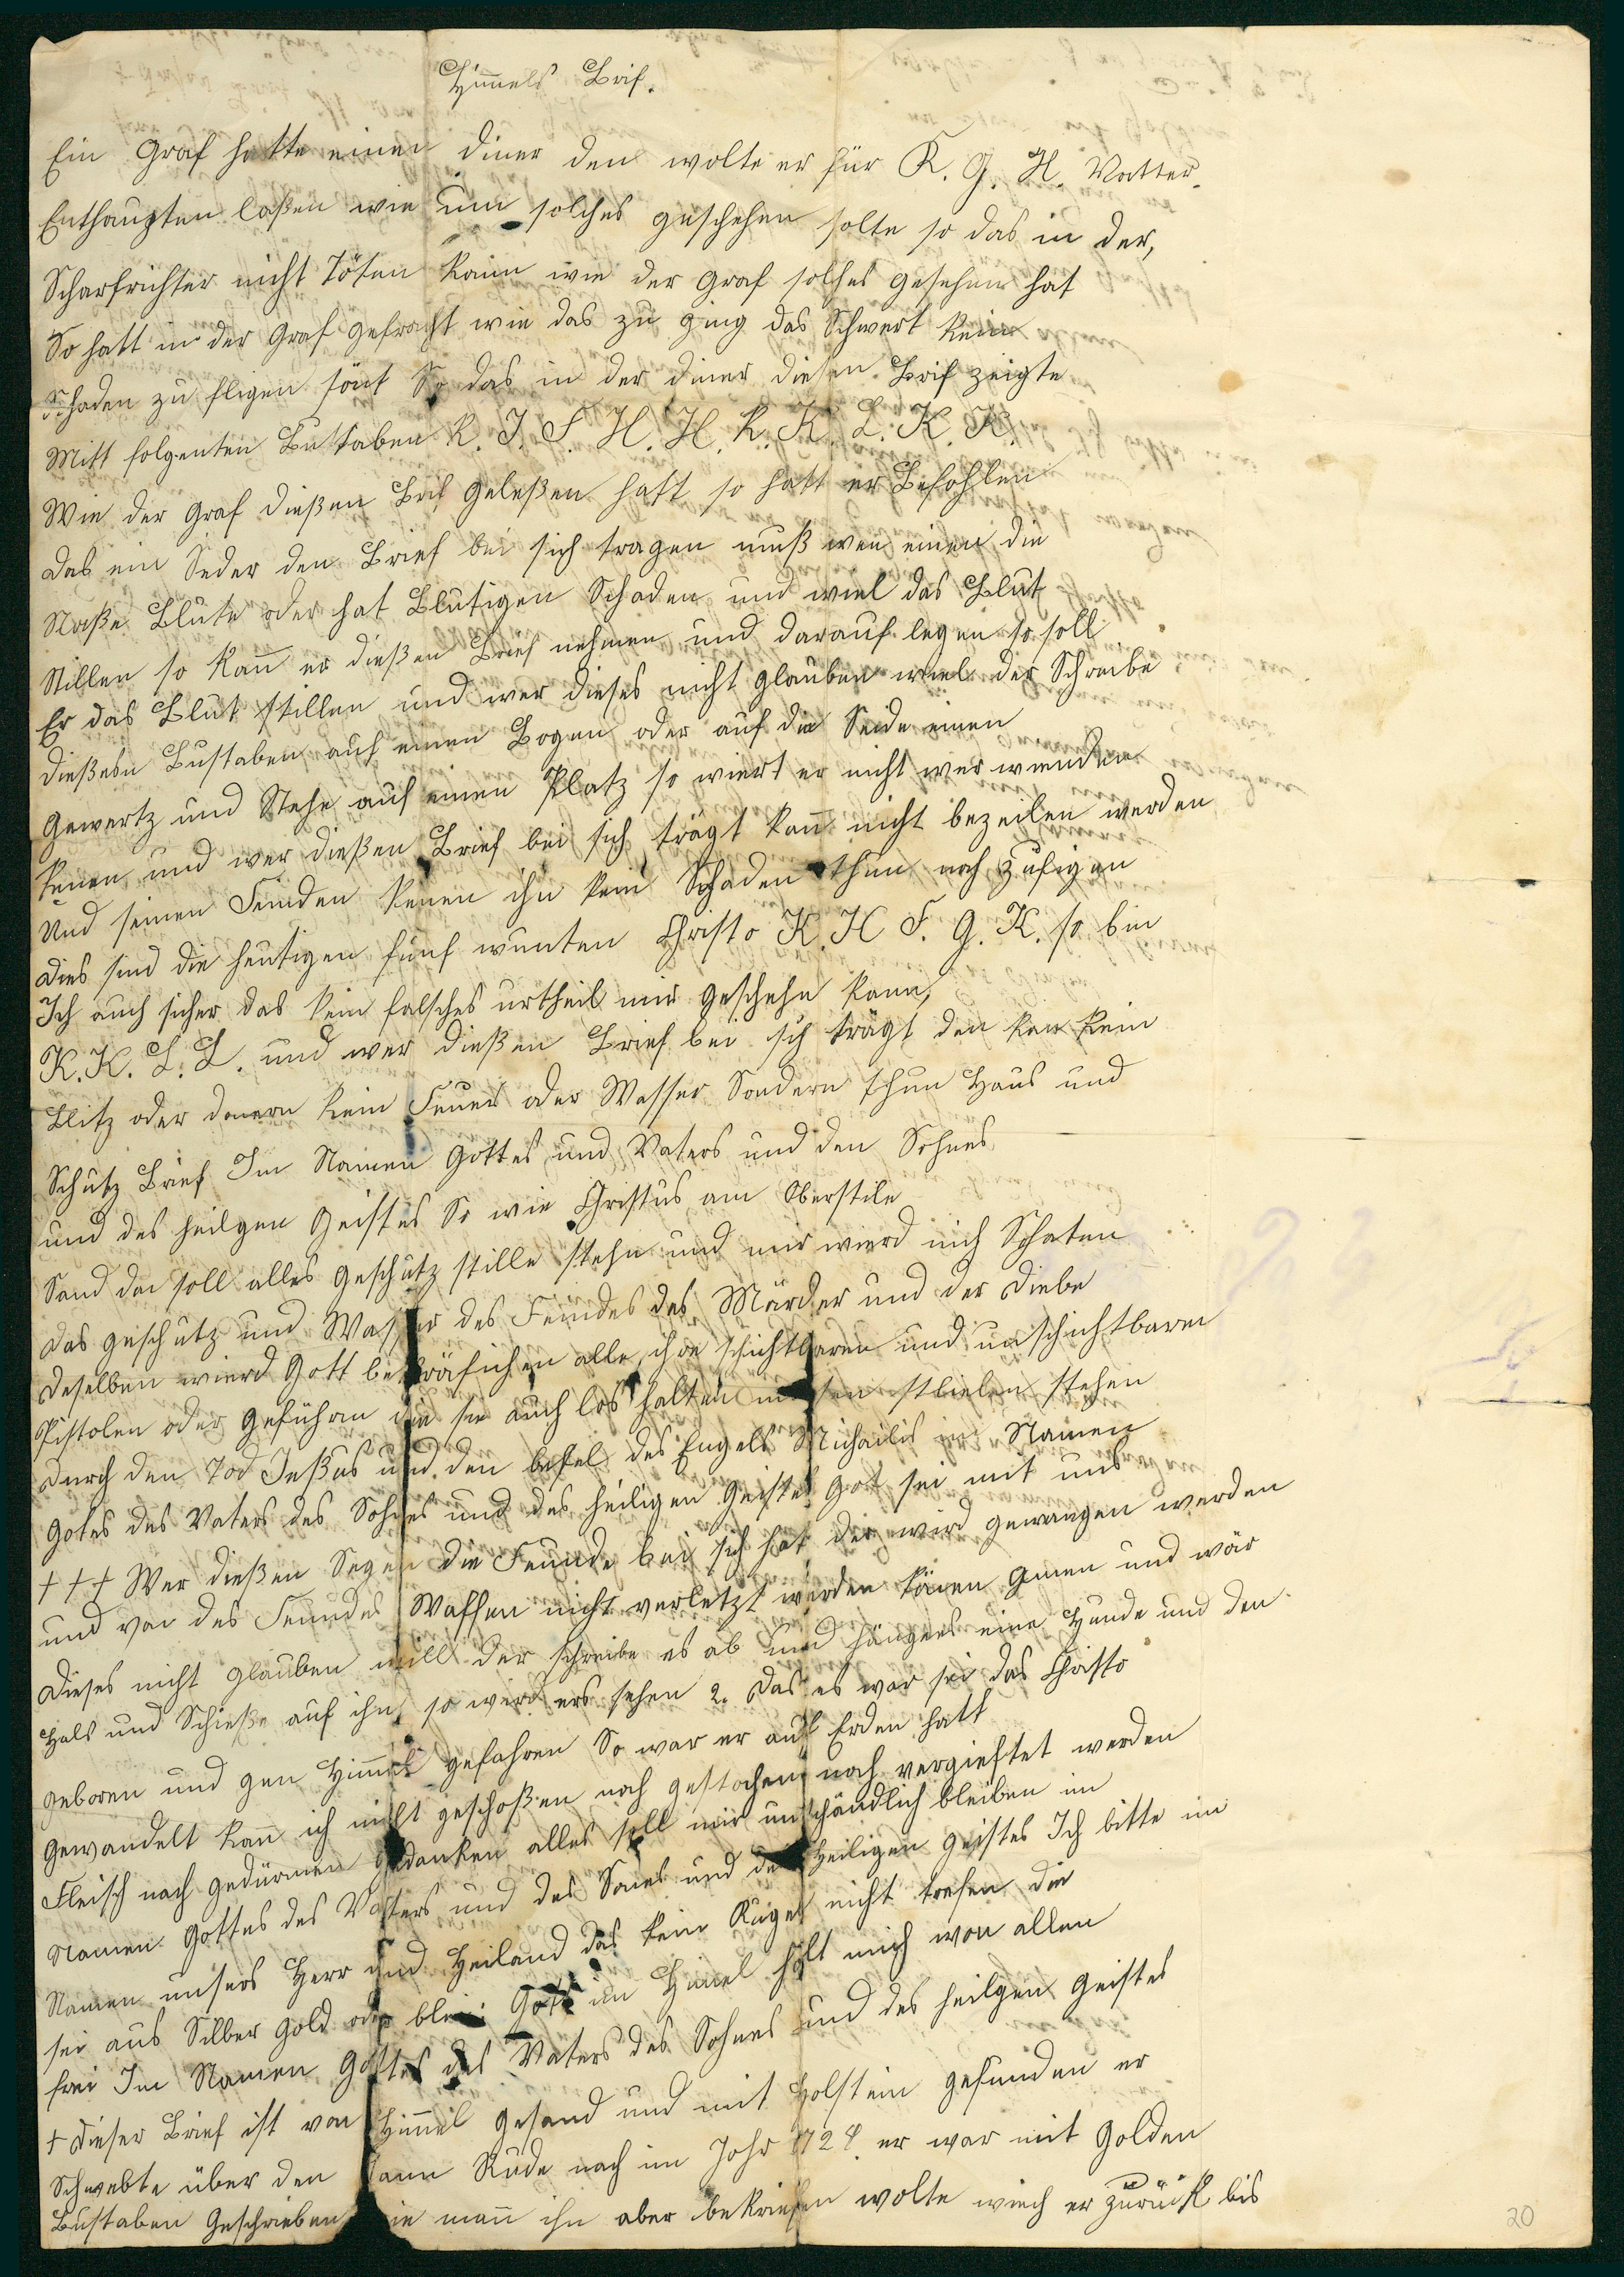 Himels Brif.
Ein Graf hatte einen diner den wolte er für R. G. H. Vatter
Enthaupten laßen wie nun solches geschehen solte so das in der,
Scharfrichter nicht Töten kann wie der Graf solches gesehen hat
So hatt in der Graf gefracht wie das zu ging das Schwert kein
Schaden zu fligen könt So das in der diner diesen Brif zeigte
Mitt folgenten Bustaben R. J. F. H. H. R. K. L. K. K.
Wie der Graf dießen Brif geleßen hatt so hatt er Befohlen
das ein Jeder den Brief bei sich tragen muß wen einen die
Naße Blute oder hat Blutigen Schaden und wiel das Blut
Stillen so kann er dießen Brief nehmen und darauf legen so soll
Er das Blut stillen und wer dieses nicht glauben wiel der Schreibe
dießebn Bustaben auf einen Bogen oder auf die Seide einen
Gewertz und Stehe auf einen Platz so wiert er nicht wer wunden
kenen und wer dießen Brief bei sich trägt kann nicht bezeilen werden
Und seinen Feinden kenen ihn kein Schaden thun noch zufigen
dies sind die heutigen fünf wunten Christo K. H F. G. K. so bin
Ich auch sicher das kein falsches urtheil mir geschehn kann,
K. K. L. L. und wer dießen Brief bei sich trägt den kan kein
Blitz oder donern kein Feuer oder Wasser Sondern thun Haus und
Schutz Brief Im Namen Gottes und Vaters und den Sohnes
und des heilgen Geistes So wie Christus am Oberstile
Sand da soll alles Geschütz stille stehn und mir wierd nich Schaten
das geschütz und Wasser des Feindes des Märder und der Diebe
deselben wierd Gott bekräfichen alle ihre schichtbaren und unschichtbaren
Pistolen oder Geführn die sie auch los halten müsen stielen stehen
durch den Tod Jeßus und den befel des Engels Michailis in Namen
Gotes des Vaters des Sohnes und des heiligen Geistes Got sei mit uns
+ + + Wer dießen Segen die Feunde bei sich hat der wird gewangen werden
und von des Feundes Waffen nicht verletzt werden könen Amen und wär
dieses nicht glauben will der schreibe es ab und hänges eine Hunde und den
Hals und Schieße auf ihn so wird ers sehen 2. das es war sei das Christo
geboren und gen Himmel gefahren So war er auf Erden hatt
Gewandelt kann ich nicht geschoßen noch gestochen noch vergieftet werden
Fleisch noch gedürmen gedanken alles soll mir unschändlich bleiben im
Namen Gottes des Vatters und des Sones und des Heiligen Geistes Ich bitte im
Namen unsers Herr und Heiland das kein Kugel nicht trefen die
sei aus Silber Gold oder blei: Gott im Himel hält mich won allen
frei Im Namen Gottes des Vaters des Sohnes und des heilgen Geistes
+ dieser Brief ist von Himmel gesand und mit Holstein gefunden er
Schwebte über den Tann Rude nach im Johr 1724 er war mit Golden
Bustaben Geschrieben wie mann ihn aber bekriefen wolte wiech er zurück bis
20